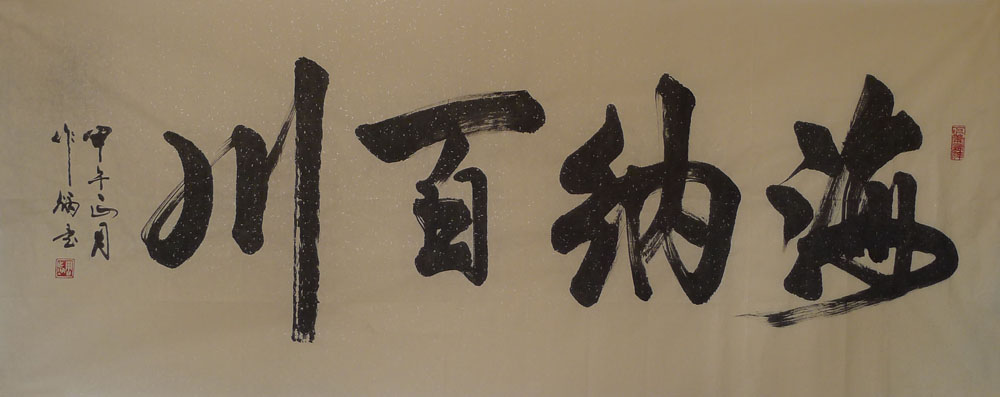 海纳百川
甲午正月
作炳书